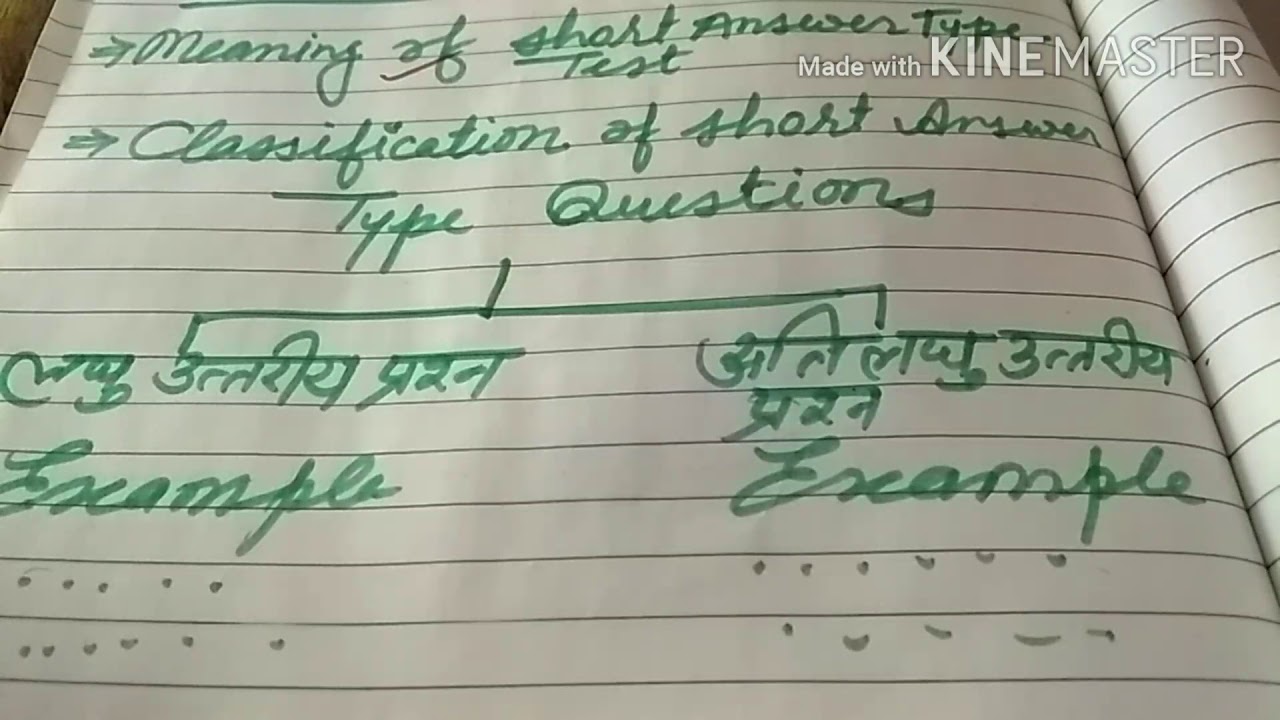 ⇒ Meaning of Short Answer Type
Test
Made with KINEMASTER
⇒ Classification of Short Answer
Type Questions
लघु उत्तरीय प्रश्न
अति लघु उत्तरीय
प्रश्न
Example
Example